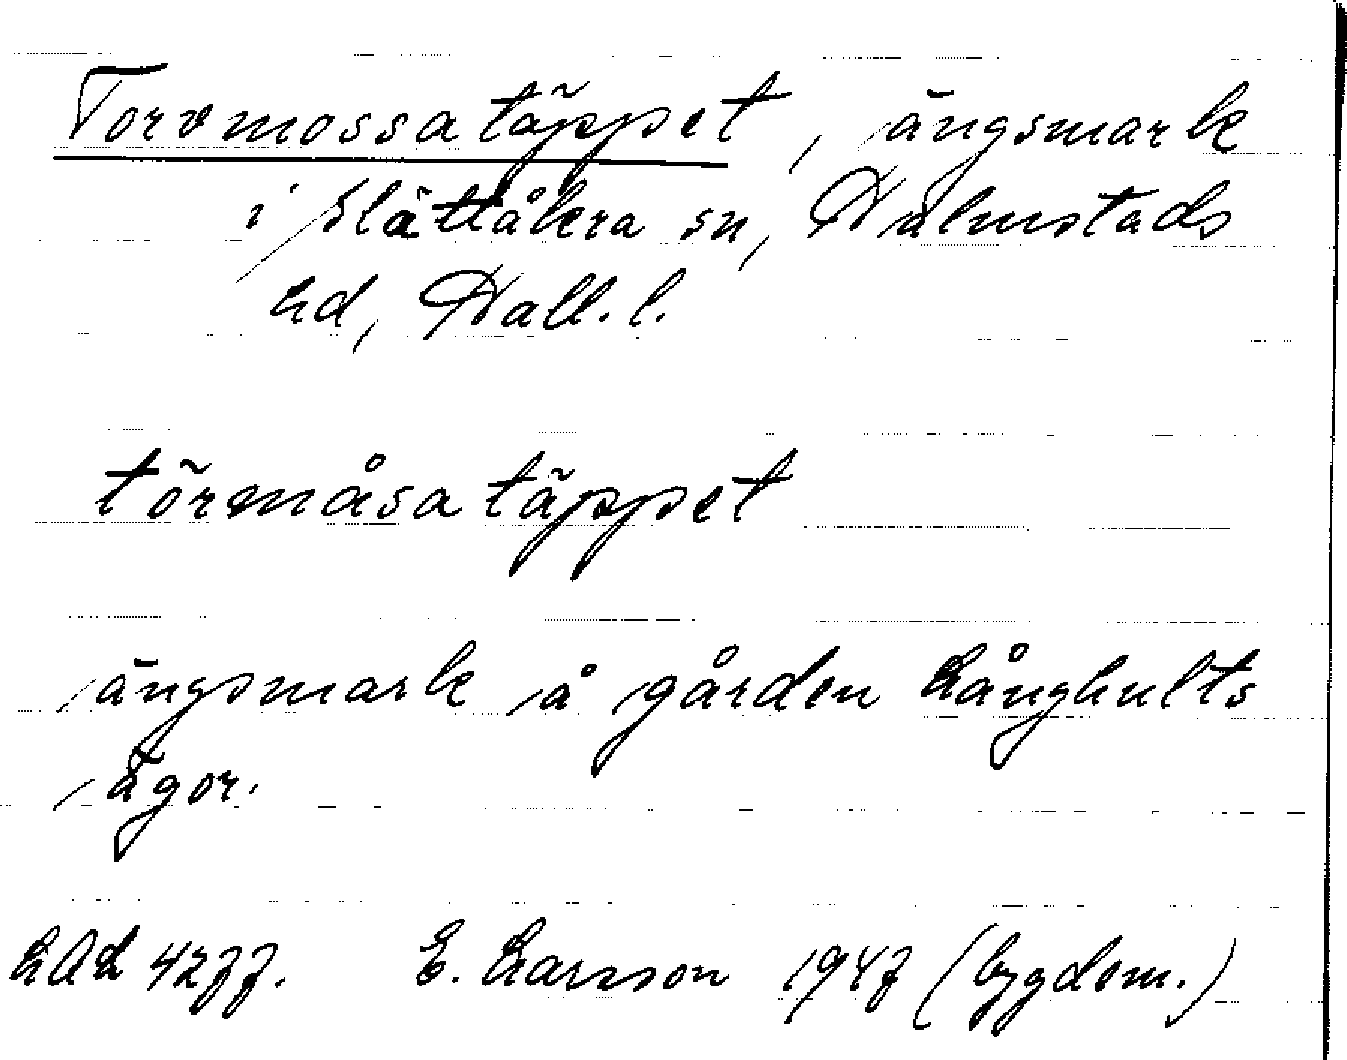 Torvmossatäppet, ängsmark
i Slättåkra sn, Halmstads
hd, Hall. l.
tõrmåsatäppet
ängsmark å gården Långhults
ägor.
LAL 4277. E. Larsson 1947 (bygdem.)